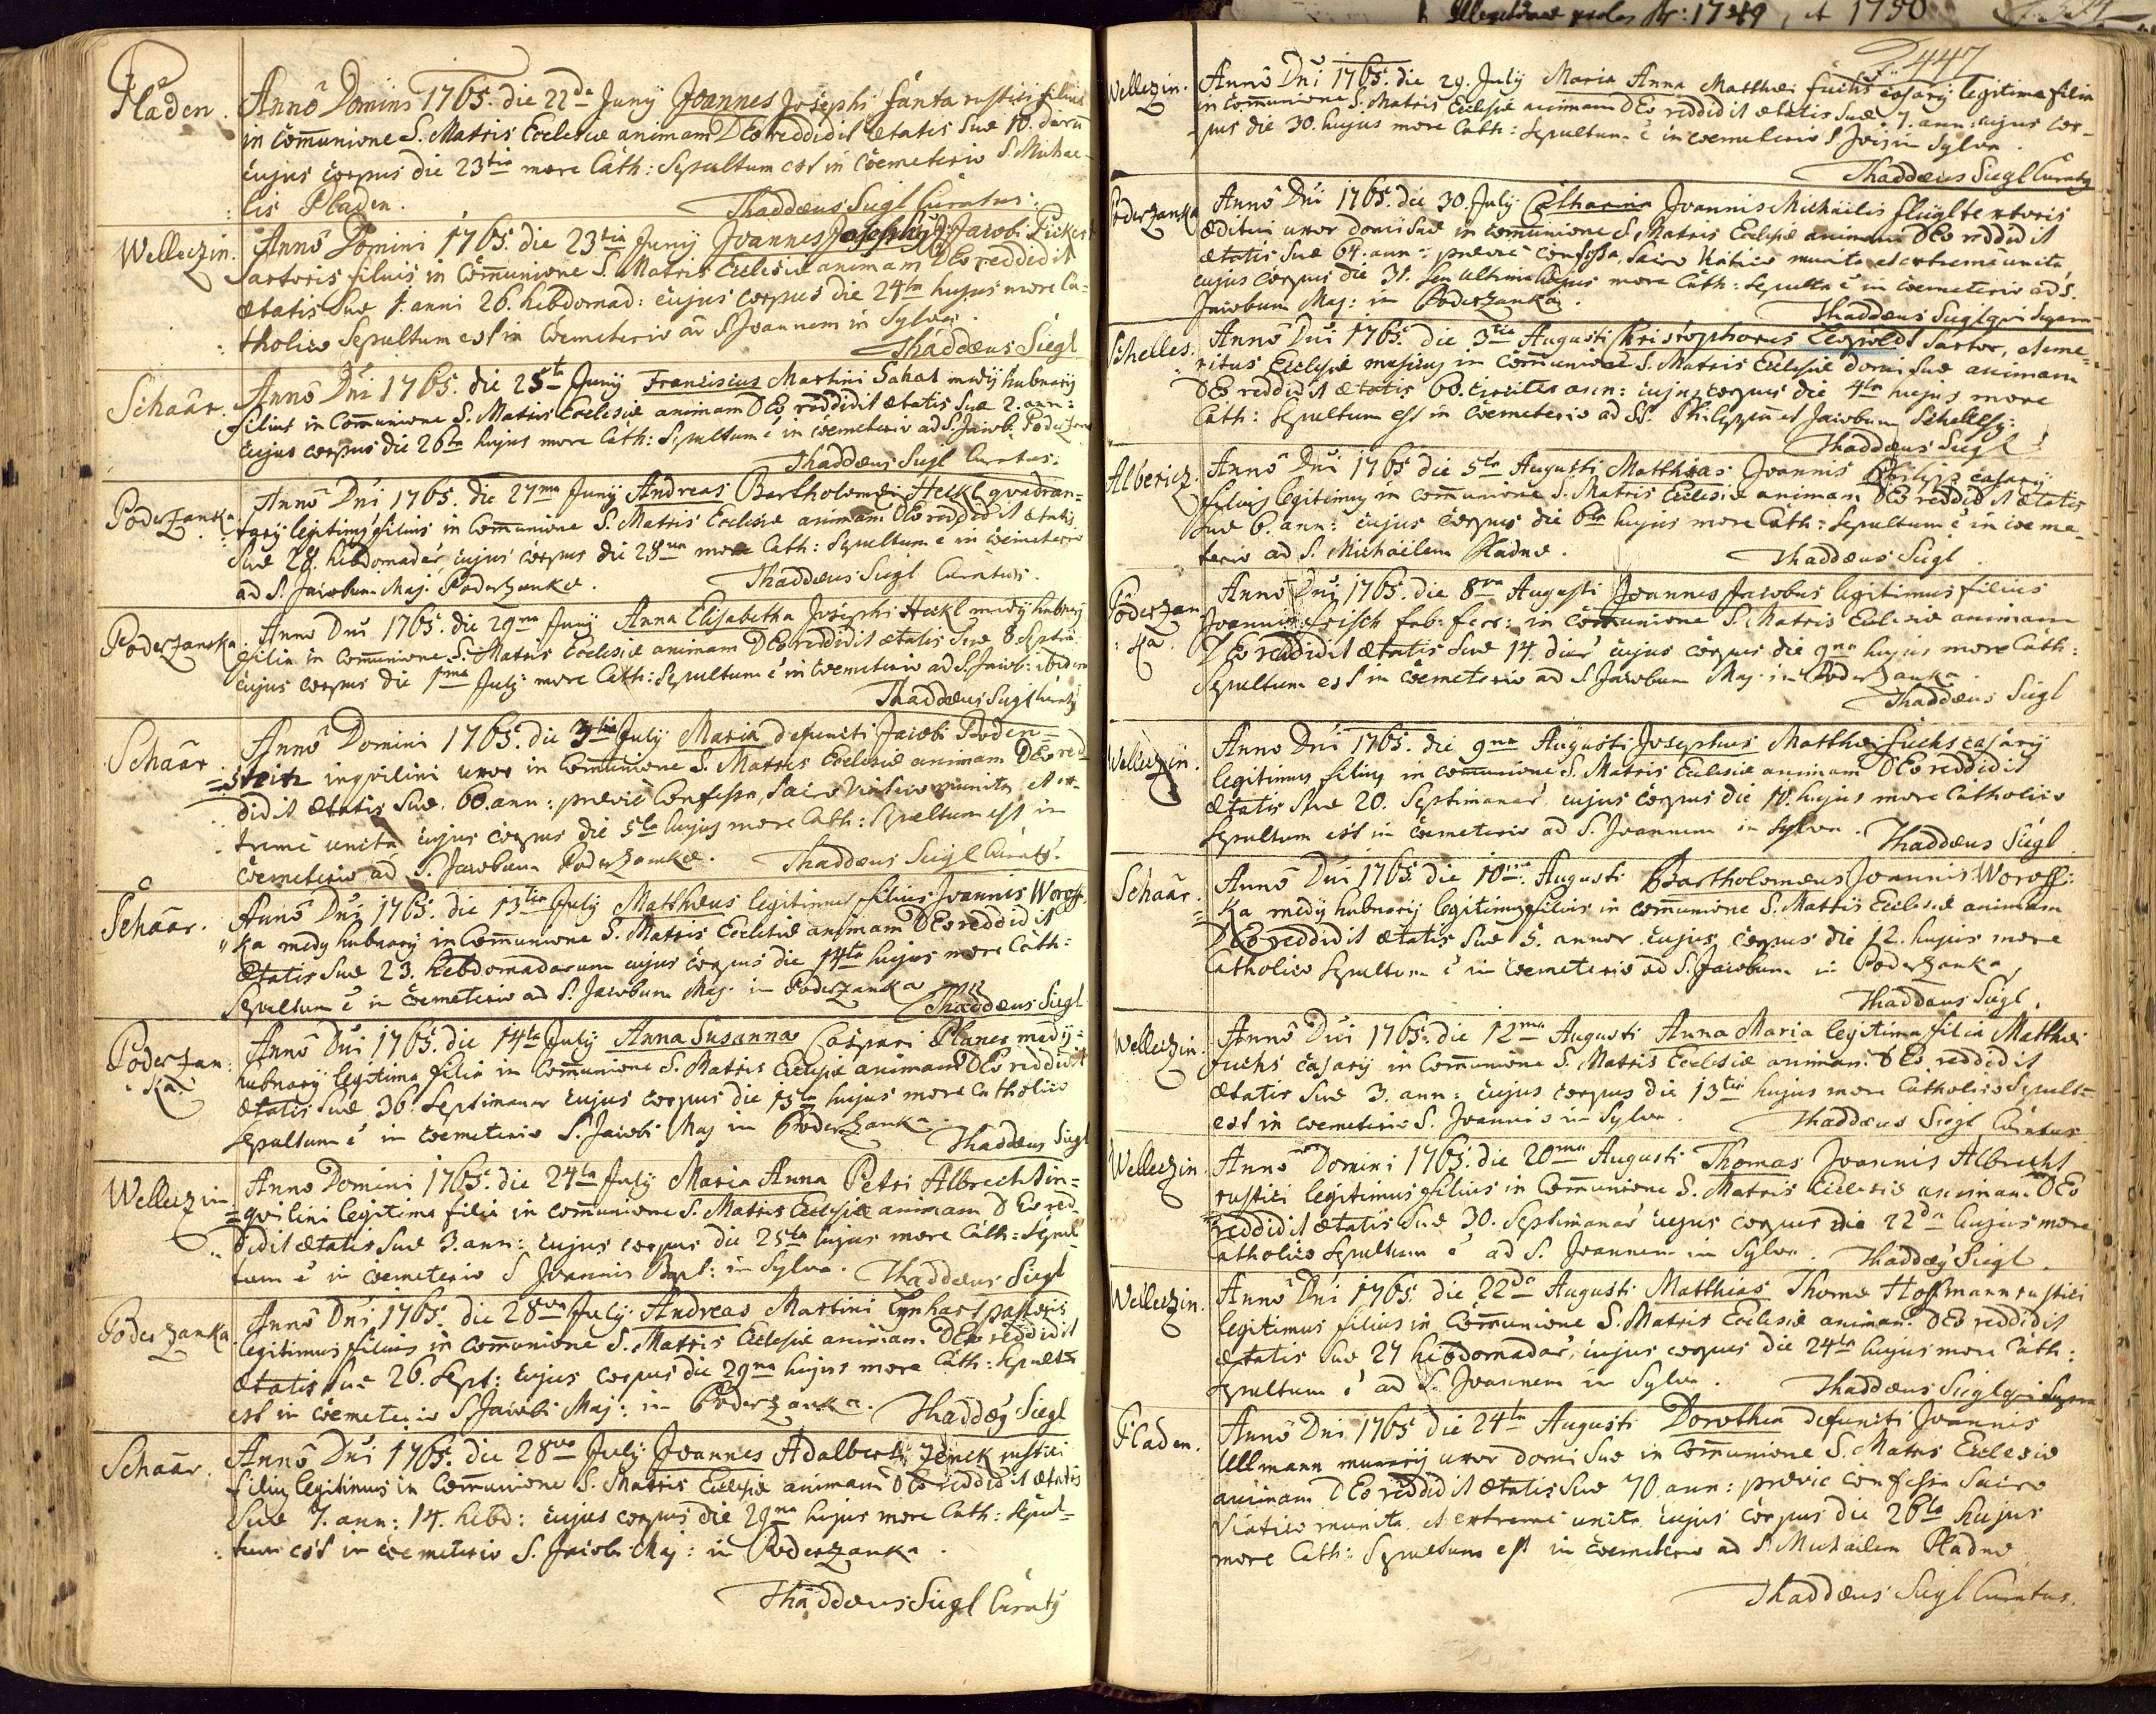 Pladen. Anno Domini 1765. die 22da Junÿ Joannes Josephi Fanta rustici filius
in Com̄unione S. Matris Ecclesiæ animam DEo reddidit ætatis suæ 10. dierū
cujus corpus die 23tia more Cath: Sepultum est in Coemeterio S. Michae-
lis Pladen. Thaddæus Siegl Curatus.
Welleczin. Anno Domini 1765. die 23tia Junÿ Joannes Josephus Jacobi Pickert
Sartoris filius in Com̄unione S. Matris Ecclesiæ animam DEo reddidit
ætatis suæ 1. anni 26. hebdomad: cujus corpus die 24ta hujus more Ca-
tholico Sepultum est in Coemeterio ad S. Joannem in Sylva.
Thaddæus Siegl
Schaar. Anno Dn̄i 1765. die 25ta Junÿ Franciscus Martini Sahat medÿ hubnarÿ
filius in Com̄unione S. Matris Ecclesiæ animam DEo reddidit ætatis suæ 2. ann:
cujus corpus die 26ta hujus more Cath: Sepultum ē in coemeterio ad S. Jacob. Poderzank
Thaddæus Siegl Curatus.
Poderzanka. Anno Dn̄i 1765. die 27ma Junÿ Andreas Bartholomæi Heckl quadran-
tarÿ legitimus filius in Com̄unione S. Matris Ecclesiæ animam DEo reddidit ætatis
suæ 28. hebdomadar. cujus corpus die 28va more Cath: Sepultum ē in coemeterio
ad S. Jacobum Maj. Poderzankæ. Thaddæus Siegl Curatus.
Poderzanka. Anno Dn̄i 1765. die 29na Junÿ Anna Elisabetha Josephi Heckl medÿ hubnarÿ
filia in Com̄unione S. Matris Ecclesiæ animam DEo reddidit ætatis suæ 8 Septim:
cujus corpus die 1ma Julÿ more Cath: Sepultum ē in Coemeterio ad S. Jacob: ibidem
Thaddæus Siegl Curatÿ
Schaar. Anno Domini 1765. die 3tia Julÿ Maria defuncti Jacobi Poden-
steitz inquilini uxor in Com̄unione S. Matris Ecclesiæ animam DEo red-
didit ætatis suæ 60. ann: præviè Confessa, Sacro Viatico munita, et ex-
tremè uncta cujus corpus die 5ta hujus more Cath: Sepultum est in
Coemeterio ad S. Jacobum Poderzankæ. Thaddæus Siegl Curatÿ.
Schaar. Anno Dn̄i 1765. die 13tia Julÿ Matthæus legitimus filius Joannis Woroff-
ka medÿ hubnarÿ in Com̄unione S. Matris Ecclesiæ animam DEo reddidit
ætatis suæ 23. hebdomadarum cujus corpus die 14ta hujus more Cath:
Sepultum ē in Coemeterio ad S. Jacobum Maj. in Poderzanka
Thaddæus Siegl
Poderzan-
ka. Anno Dn̄i 1765. die 14ta Julÿ Anna Susanna Caspari Planer medÿ-
hubnarÿ legitima filia in Com̄unione S. Matris Ecclesiæ animam DEo reddidit
ætatis suæ 36. Septimanar cujus corpus die 15ta hujus more Catholico
Sepultum ē in Coemeterio S. Jacobi Maj in Poderzanka. Thaddæus Siegl
Welleczin Anno Domini 1765. die 24ta Julÿ Maria Anna Petri Albrecht in-
quilini legitima filia in com̄unione S. Matris Ecclesiæ animam DEo red-
didit ætatis suæ 3. ann: cujus corpus die 25ta hujus more Cath: Sepul-
tum ē in coemeterio S Joannis Bapt: in Sylva. Thaddæus Siegl
Poderzanka. Anno Dn̄i 1765. die 28va Julÿ Andreas Martini Lynhart pastoris
legitimus filius in Com̄unione S. Matris Ecclesiæ animam DEo reddidit
ætatis suæ 26. Sept: cujus corpus die 29na hujus more Cath: Sepultū
est in coemeterio S. Jacobi Maj: in Poderzanka. Thaddæÿ Siegl
Schaar. Anno Dn̄i 1765. die 28va Julÿ Joannes Adalberti Jenck rustici
filius legitimus in Com̄unione S. Matris Ecclesiæ animam DEo reddidit ætatis
suæ 7. ann: 14. hebd: cujus corpus die 29na hujus more Cath: Sepul-
tum est in coemeterio S. Jacobi Maj: in Poderzanka.
Thaddæus Siegl Curatÿ
Illegitimæ proles Ao: 1749, et 1750
P. 447
Welleczin. Anno Dn̄i 1765. die 29. Julÿ Maria Anna Matthæi Fuchs casarÿ legitima filia
in Com̄unione S. Matris Ecclesiæ animam DEo reddidit ætatis suæ 7. ann: cujus cor-
pus die 30. hujus more Cath: Sepultum ē in coemeterio S Jois in Sylva.
Thaddæus Siegl Curatÿ
Poderzanka Anno Dn̄i 1765. die 30. Julÿ Catharina Joannis Michaelis Flügl textoris
æditui uxor domi suæ in com̄unione S. Matris Ecclesiæ animam DEo reddidit
ætatis suæ 64. ann: præviè confessa, Sacro Viatico munita et extreme uncta,
cujus corpus die 31. seu ultima hujus more Cath: Sepulta ē in coemeterio ad S.
Jacobum Maj: in Poderzanka.
Thaddæus Siegl qui Supra
Schelles. Anno Dn̄i 1765. die 3tia Augusti Christophorus Leopoldt Sartor, et eme-
ritus Ecclesiæ musicus in Com̄unione S. Matris Ecclesiæ domi suæ animam
DEo reddidit ætatis 60. circiter ann: cujus corpus die 4ta hujus more
Cath: Sepultum est in coemeterio ad SS. Philippum et Jacobum Schelles:
Thaddæus Siegl
Albericz. Anno Dn̄i 1765 die 5ta Augusti Matthias Joannis Philipp casarÿ
filius legitimus in com̄unione S. Matris Ecclesiæ animam DEo reddidit ætatis
suæ 6. ann: cujus corpus die 6ta hujus more Cath: Sepultum ē in coeme-
terio ad S. Michaëlem Pladnæ. Thaddæus Siegl
Poderzan-
ka. Anno Dn̄i 1765. die 8va Augusti Joannes Jacobus legitimus filius
Joannis Frisch fab: ferr: in com̄unione S. Matris Ecclesiæ animam
DEo reddidit ætatis suæ 14. dier cujus corpus die 9na hujus more Cath:
Sepultum est in coemeterio ad S. Jacobum Maj. in Poderzanka.
Thaddæus Siegl
Welleczin. Anno Dn̄i 1765. die 9na Augusti Josephus Matthæi Fuchs casarÿ
legitimus filius in com̄unione S. Matris Ecclesiæ animam DEo reddidit
ætatis suæ 20. Septimanar cujus corpus die 10. hujus more Catholico
Sepultum est in coemeterio ad S. Joannem in Sylva. Thaddæus Siegl
Schaar. Anno Dn̄i 1765. die 10ma Augusti Bartholomæus Joannis Woroff-
ka medÿ hubnarÿ legitimus filius in com̄unione S. Matris Ecclesiæ animam
DEo reddidit ætatis suæ 5. annor. cujus corpus die 12. hujus more
Catholico Sepultum ē in Coemeterio ad S. Jacobum in Poderzanka,
Thaddæus Siegl.
Welleczin Anno Dn̄i 1765. die 12ma Augusti Anna Maria legitima filia Matthæi
Fuchs casarÿ in Com̄unione S. Matris Ecclesiæ animam DEo reddidit
ætatis suæ 3. ann: cujus corpus die 13tia hujus more Catholico Sepult-
est in coemeterio S. Joannis in Sylva. Thaddæus Siegl Curatus
Welleczin Anno Domini 1765. die 20ma Augusti Thomas Joannis Albrecht
rustici legitimus filius in Com̄unione S. Matris Ecclesiæ animam DEo
reddidit ætatis suæ 30. Septimanar cujus corpus die 22da hujus more
Catholico Sepultum ē ad S. Joannem in Sylva. Thaddæÿ Siegl.
Welleczin. Anno Dn̄i 1765. die 22da Augusti Matthias Thomæ Hoffmann rustici
legitimus filius in Com̄unione S. Matris Ecclesiæ animam DEo reddidit
ætatis suæ 27 hebdomadar, cujus corpus die 24ta hujus more Cath:
Sepultum ē ad S. Joannem in Sylva. Thaddæus Siegl qui Supra
Pladen. Anno Dn̄i 1765 die 24ta Augusti Dorothea defuncti Joannis
Ullmann murarÿ uxor domi suæ in Com̄unione S. Matris Ecclesiæ
animam DEo reddidit ætatis suæ 70 ann: præviè confessa Sacro
Viatico munita, et extremè uncta cujus corpus die 26ta hujus
more Cath: Sepultum est in coemeterio ad S. Michaëlem Pladnæ
Thaddæus Siegl Curatus.